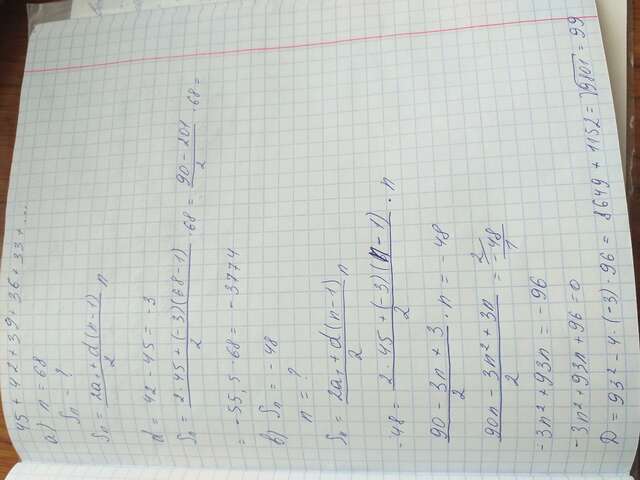 45 + 42 + 39 + 36 + 33 + ...
а) n = 68
Sn = ?
Sn = (2a₁ + d(n-1))/2 n
d = 42 - 45 = -3
Sn = (2·45 + (-3)(68-1))/2 · 68 = (90 - 201)/2 · 68 =
= -55,5 · 68 = -3774
в) Sn = -48
n = ?
Sn = (2a₁ + d(n-1))/2 n
-48 = (2·45 + (-3)(n-1))/2 · n
(90 - 3n + 3)/2 · n = -48
(90n - 3n² + 3n)/2 = -48/1
-3n² + 93n = -96
-3n² + 93n + 96 = 0
D = 93² - 4·(-3)·96 = 8649 + 1152 = √9801 = 99